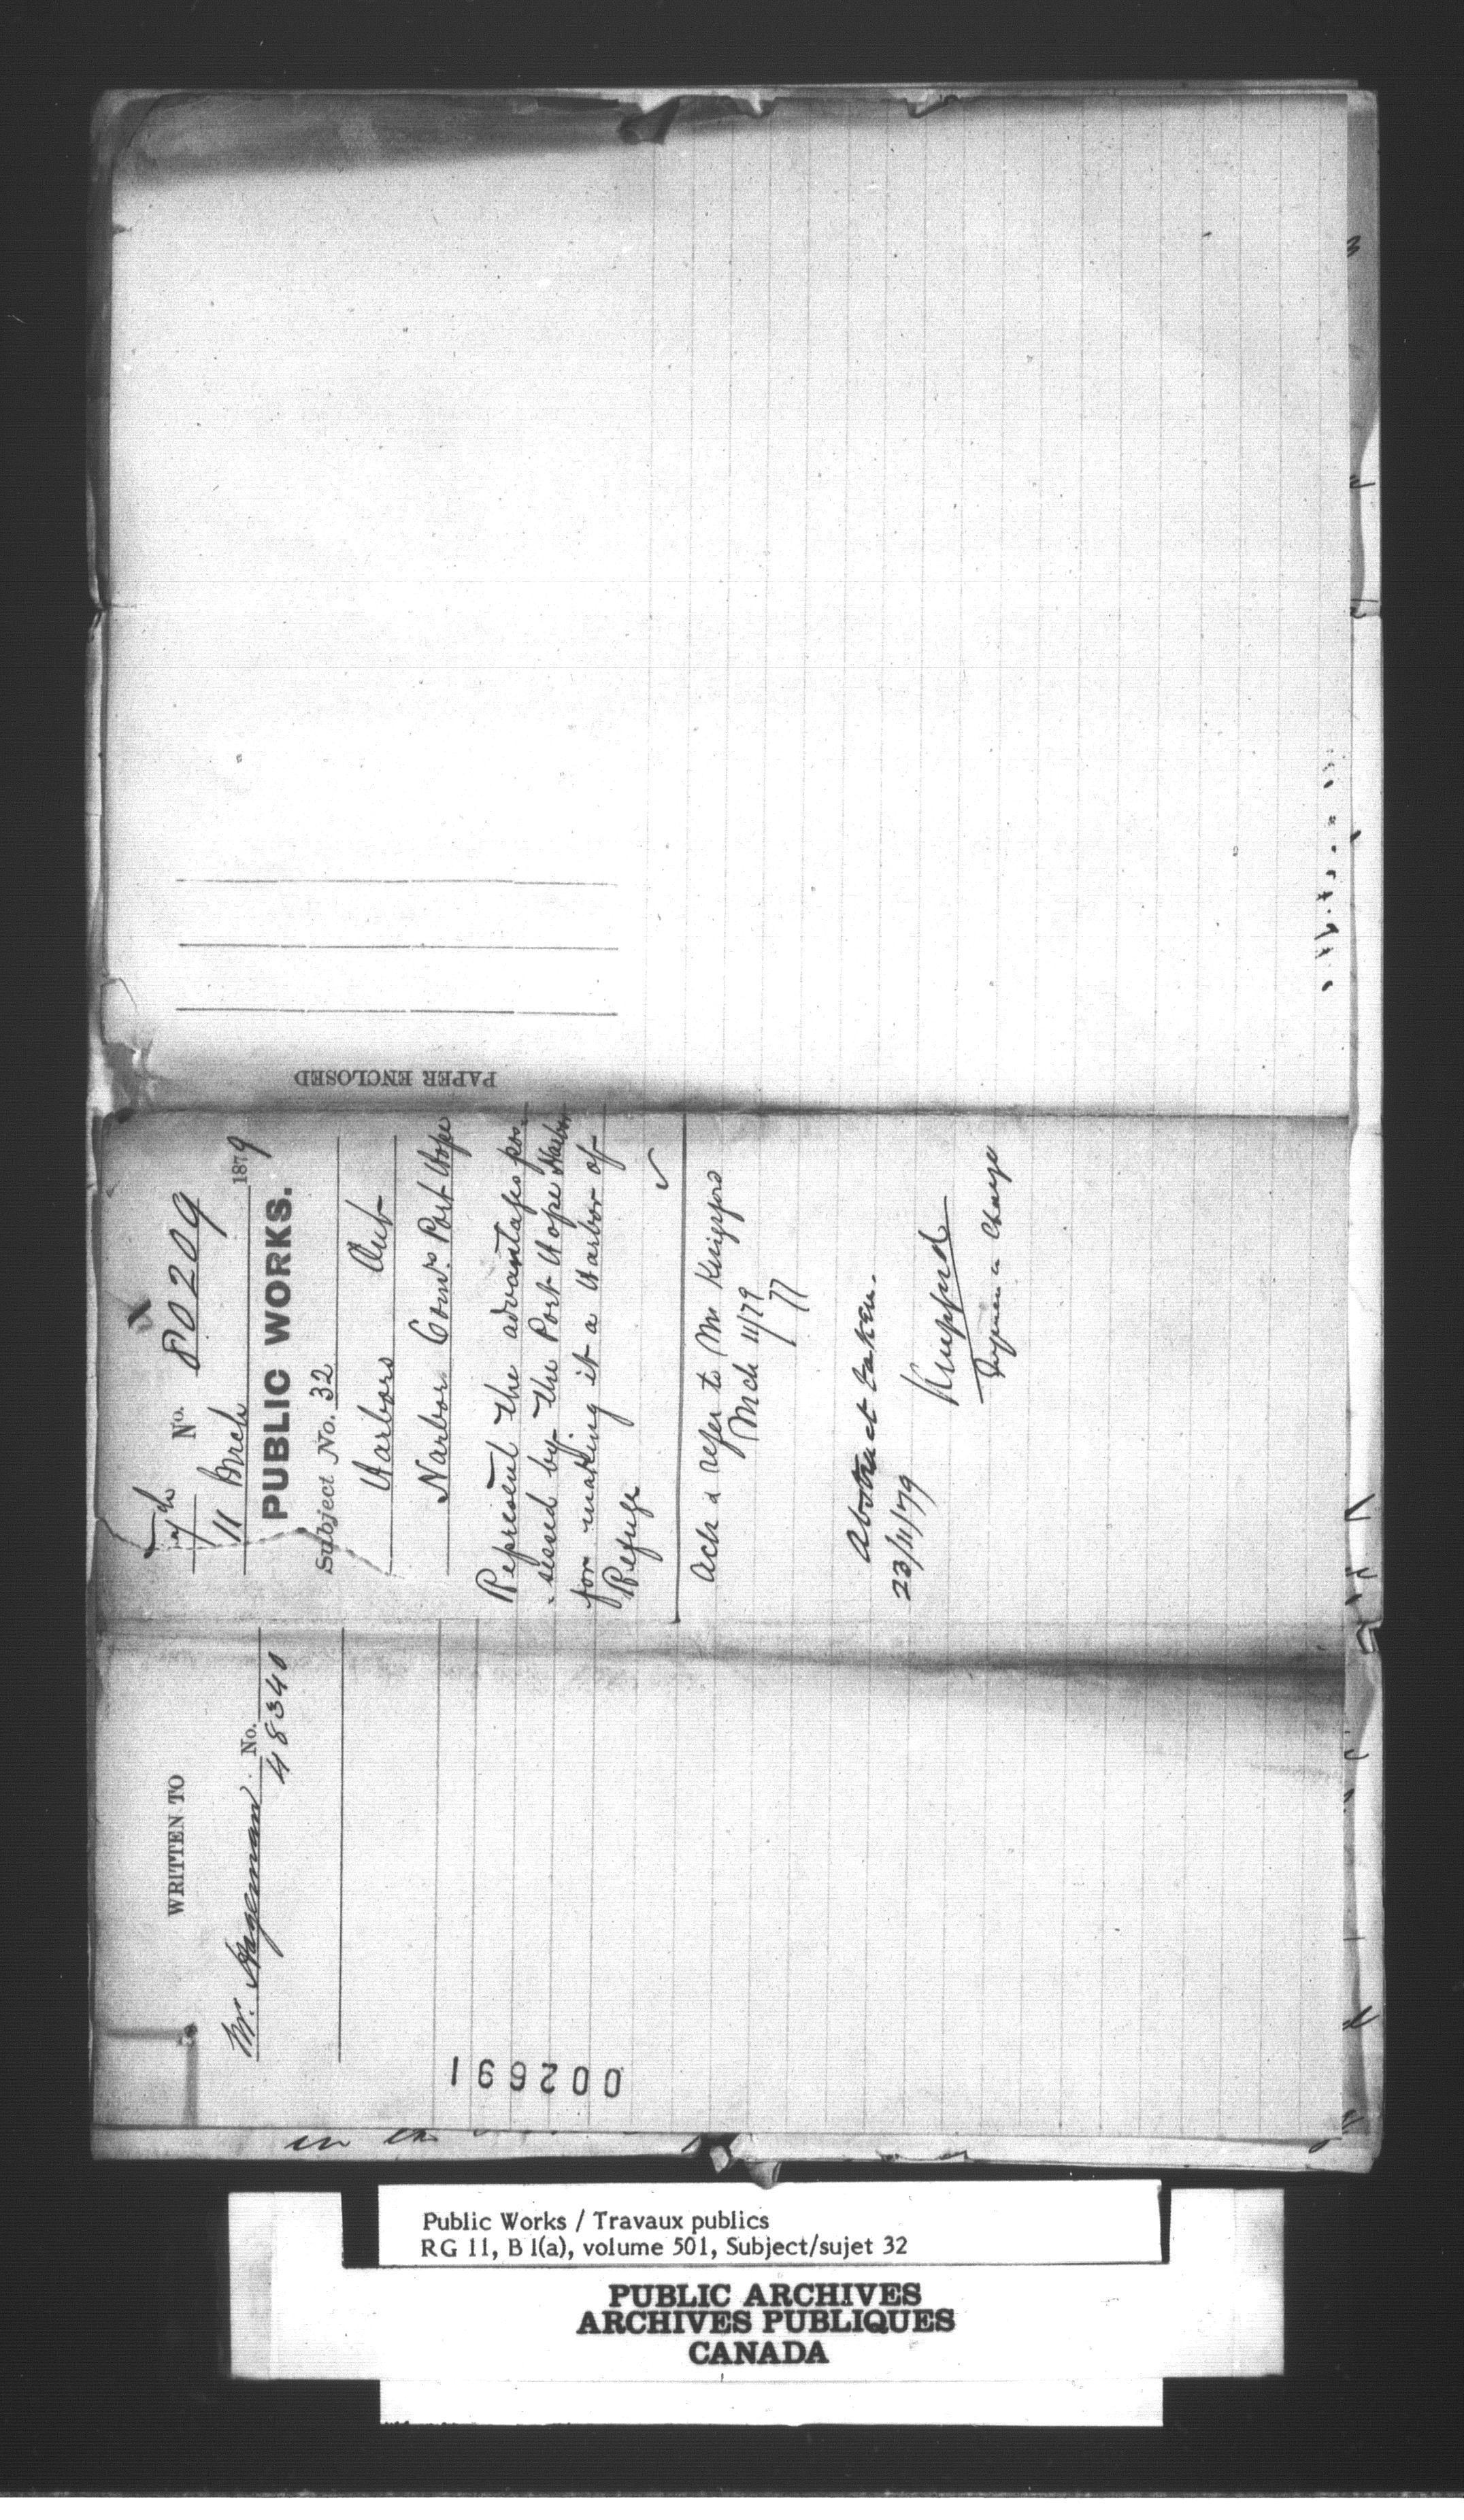 WRITTEN TO
Mr. Hageman No.
48340
002691
No. 80209
11 Mch 1879
PUBLIC WORKS.
Subject No. 32
Harbors Ont
Harbor Comrs Port Hope
Represent the advantages pos-
-sessed by the Port Hope Harbor
for making it a Harbor of
Refuge
Ack & refer to Mr Kingsford
Mch 11/79
77
Abstract taken.
23/11/79
in Charge
PAPER ENCLOSED
in the
Public Works / Travaux publics
RG 11, B 1(a), volume 501, Subject/sujet 32
PUBLIC ARCHIVES
ARCHIVES PUBLIQUES
CANADA